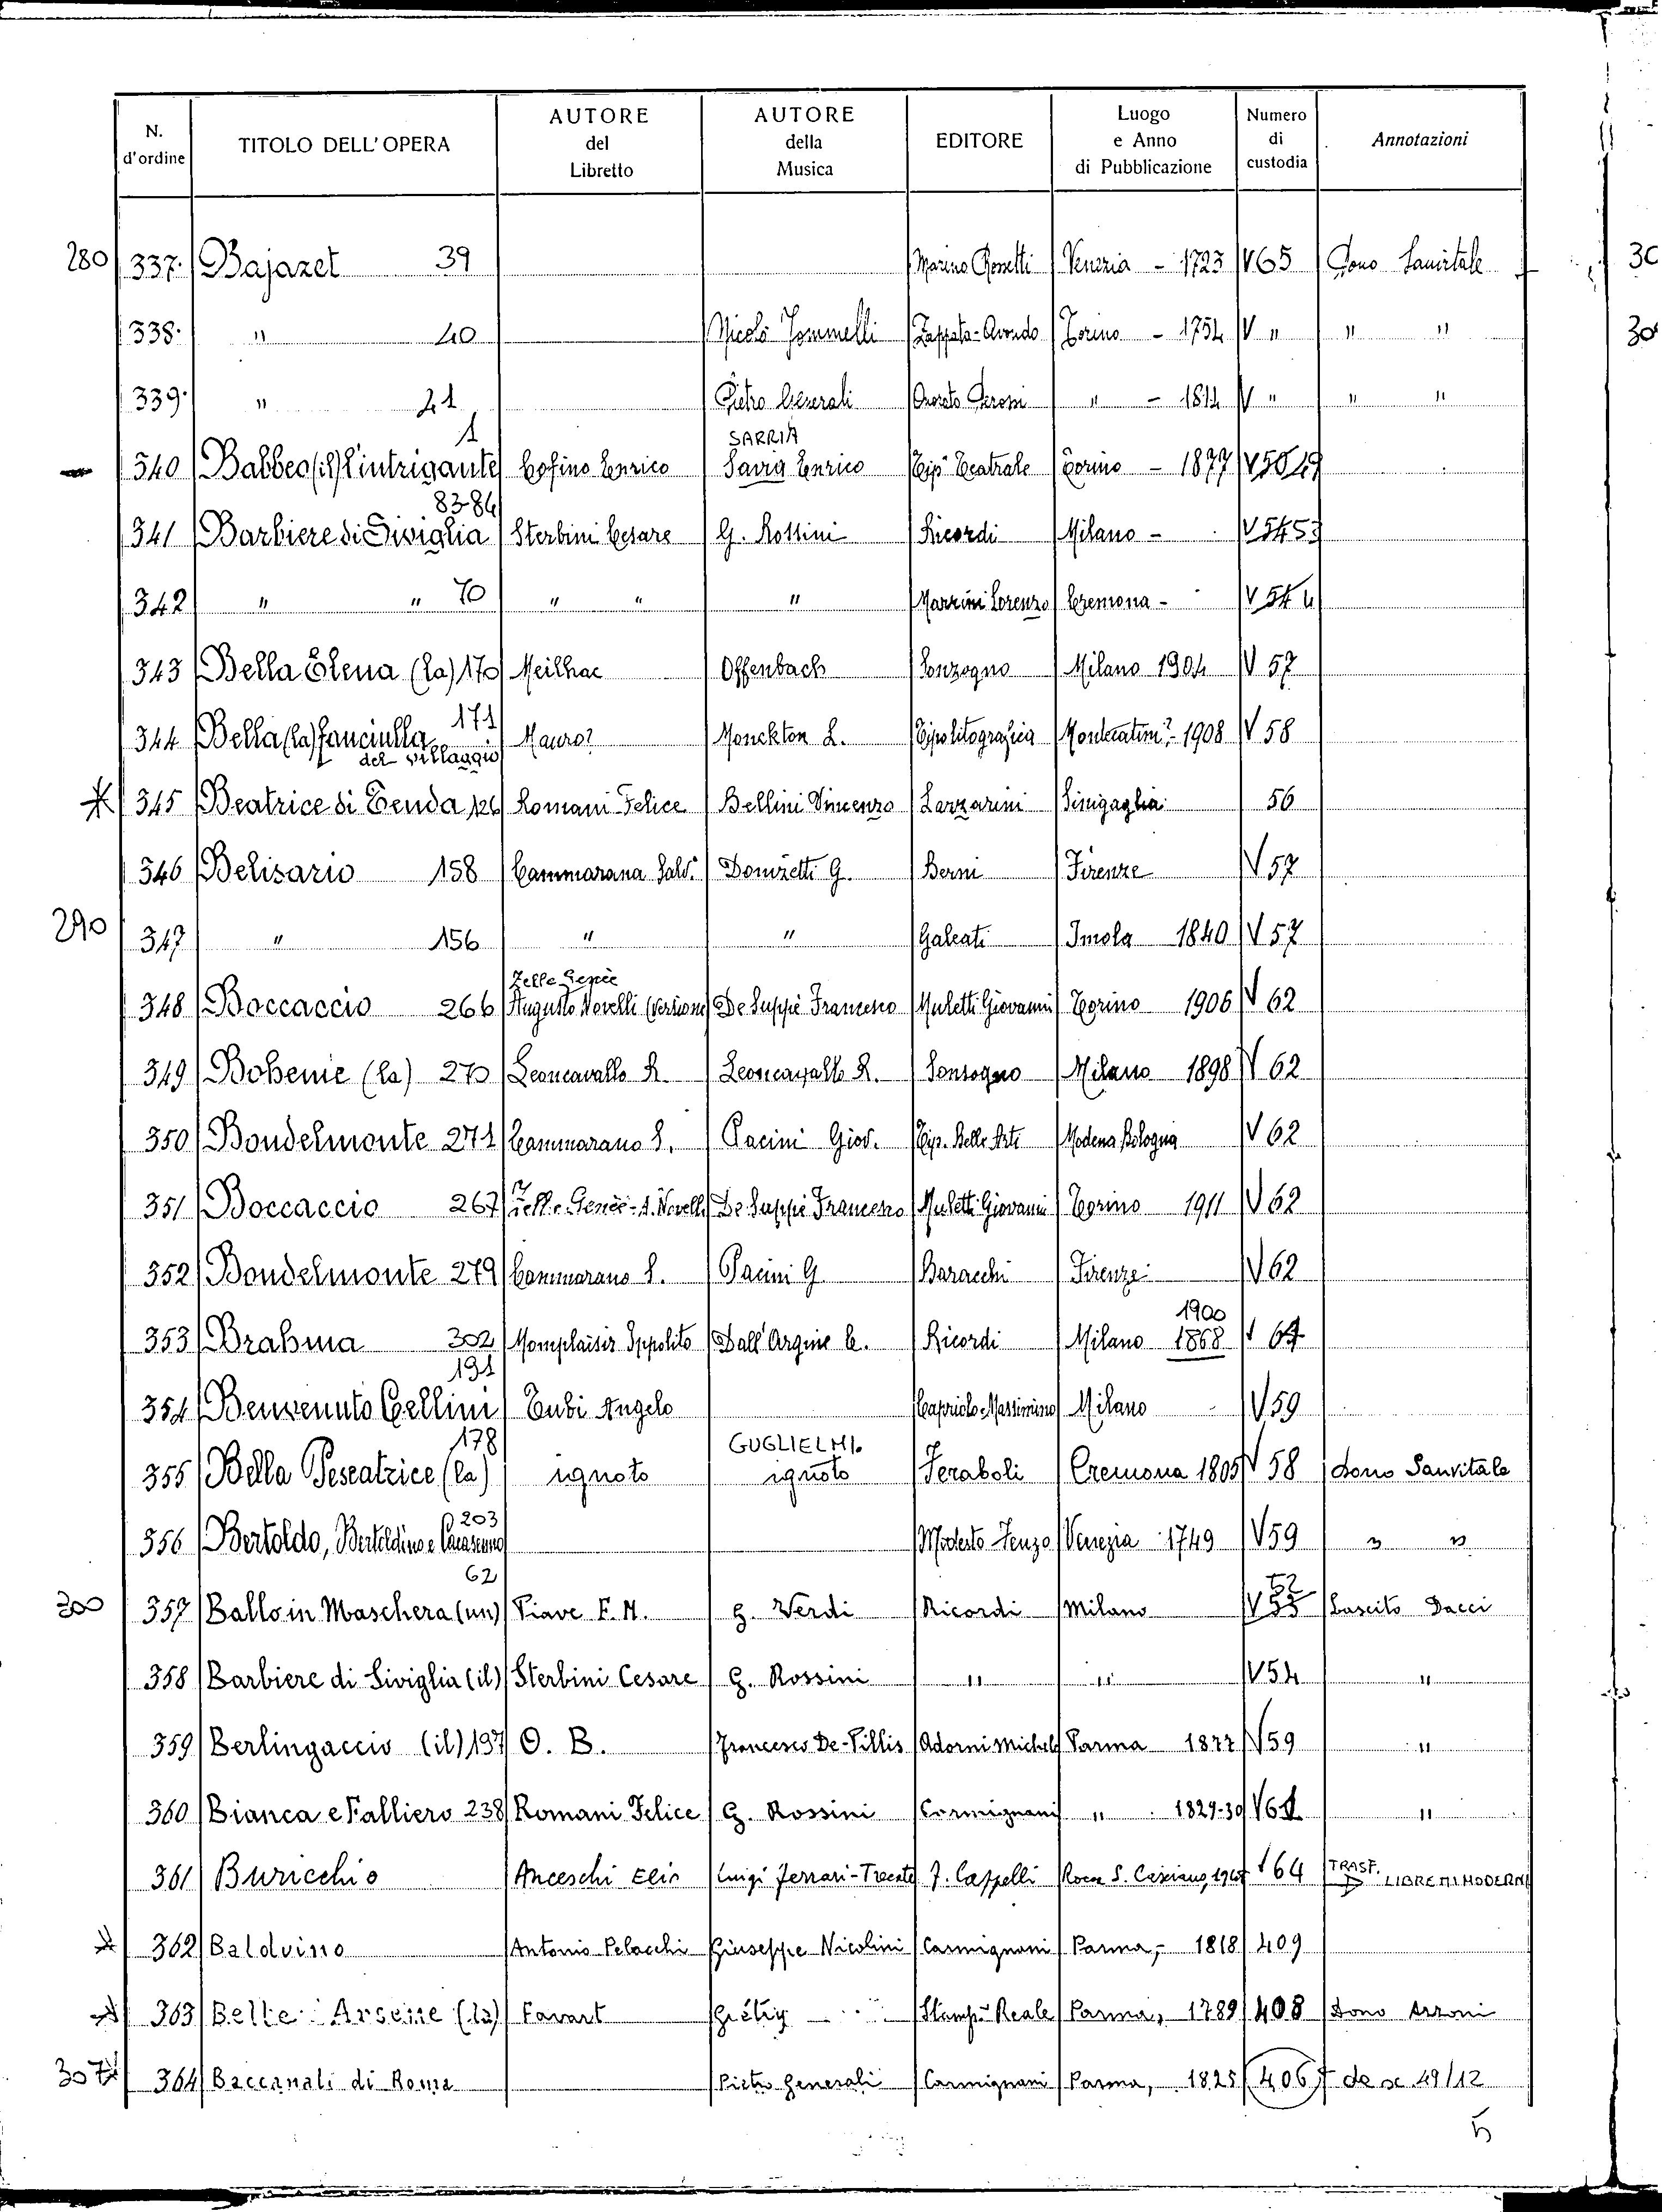 N. d'ordine TITOLO DELL'OPERA AUTORE del Libretto AUTORE della Musica EDITORE Luogo e Anno di Pubblicazione Numero di custodia Annotazioni
280 337. Bajazet 39 Marino Rossetti Venezia - 1723 V 65 Dono Sanvitale
338. " 40 Nicolò Jommelli Zappata-Avondo Torino - 1754 V " " "
339. " 21 Pietro Generali Onorato Derossi " - 1814 V " " "
340 Babbeo (il) l'intrigante 1 Cofino Enrico SARRIA Savia Enrico Tip. Teatrale Torino - 1877 V
341 Barbiere di Siviglia 83-84 Sterbini Cesare G. Rossini Ricordi Milano - V
342 " " 70 " " " Mazzini Lorenzo Cremona - V
343 Bella Elena (la) 170 Meilhac Offenbach Sonzogno Milano 1904 V 57
344 Bella (la) fanciulla del villaggio 171 Mauro? Monckton L. Tipolitografica Montecatini? - 1908 V 58
345 Beatrice di Tenda 126 Romani Felice Bellini Vincenzo Lazzarini Sinigaglia 56
346 Belisario 158 Cammarana Salv. Donizetti G. Berni Firenze V 57
290 347 " 156 " " Galeati Imola 1840 V 57
348 Boccaccio 266 Zelle Genèe Augusto Novelli (versione) De Suppè Francesco Muletti Giovanni Torino 1906 V 62
349 Boheme (la) 270 Leoncavallo R. Leoncavallo R. Sonzogno Milano 1898 V 62
350 Bondelmonte 271 Cammarano S. Pacini Giov. Tip. Belle Arti Modena Bologna V 62
351 Boccaccio 267 Zell e Genèe - A. Novelli De Suppè Francesco Muletti Giovanni Torino 1911 V 62
352 Bondelmonte 279 Cammarano S. Pacini G Baracchi Firenze V 62
353 Brahma 302 Momplaisir Ippolito Dall'Argine C. Ricordi Milano 1900 1868 V
354 Benvenuto Cellini 191 Tubi Angelo Capriolo-Massimino Milano V 59
355 Bella Pescatrice (la) 178 ignoto GUGLIELMI. ignoto Feraboli Cremona 1805 V 58 dono Sanvitale
356 Bertoldo, Bertoldino e Cacasenno 203 Modesto Fenzo Venezia 1749 V 59 " "
300 357 Ballo in Maschera (un) 62 Piave F. M. G. Verdi Ricordi Milano V 52 Lascito Dacci
358 Barbiere di Siviglia (il) Sterbini Cesare G. Rossini " " V 54 "
359 Berlingaccio (il) 197 O. B. Francesco De-Pillis Adorni Michele Parma 1877 V 59 "
360 Bianca e Falliero 238 Romani Felice G. Rossini Carmignani " 1829-30 V 61 "
361 Buricchio Anceschi Elio Luigi Ferrari-Trecate F. Cappelli Rocca S. Casciano, V 64 TRASF. LIBRETTI MODERNI
362 Balduino Antonio Pelacchi Giuseppe Nicolini Carmignani Parma, - 1818 409
363 Belle Arsene (la) Favart Grétry Stamp. Reale Parma, 1789 408 dono Azzoni
307 364 Baccanali di Roma Pietro Generali Carmignani Parma, 1825 406 de sc. 49/12
5
30
30